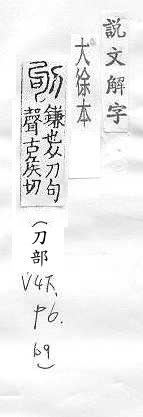 說文解字
大徐本
鎌也从刀句
聲古矦切
(刀部
V4下,
p6.
b9)